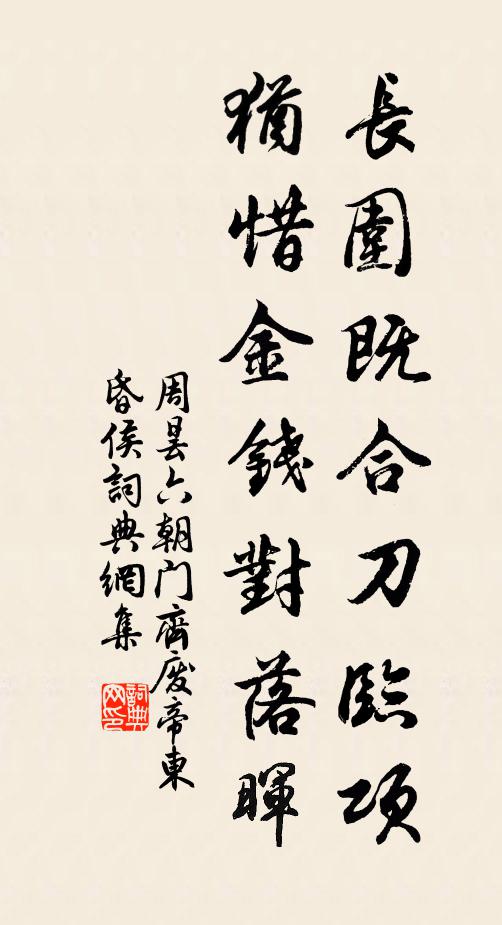 長圍既合刀臨項
猶惜金錢對落暉
周曇六朝門齊废帝東
昏侯詞典網集
詞典网印